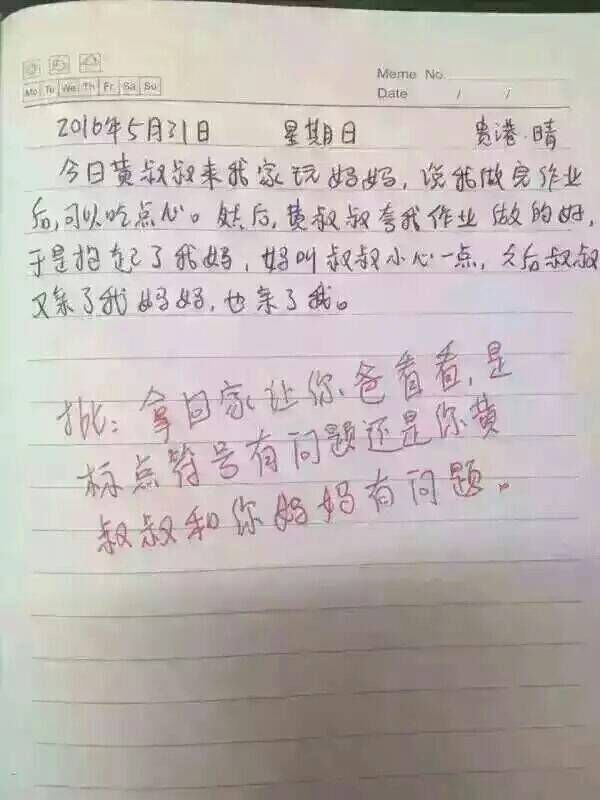 Meme No.
Mo Tu We Th Fr Sa Su
Date / /
2016年5月31日 星期日 贵港·晴
今日黄叔叔来我家玩妈妈，说我做完作业
后，可以吃点心。然后，黄叔叔夸我作业做的好，
于是抱起了我妈，妈叫叔叔小心一点，之后叔叔
又亲了我妈妈，也亲了我。
批：拿回家让你爸看看，是
标点符号有问题还是你黄
叔叔和你妈妈有问题。